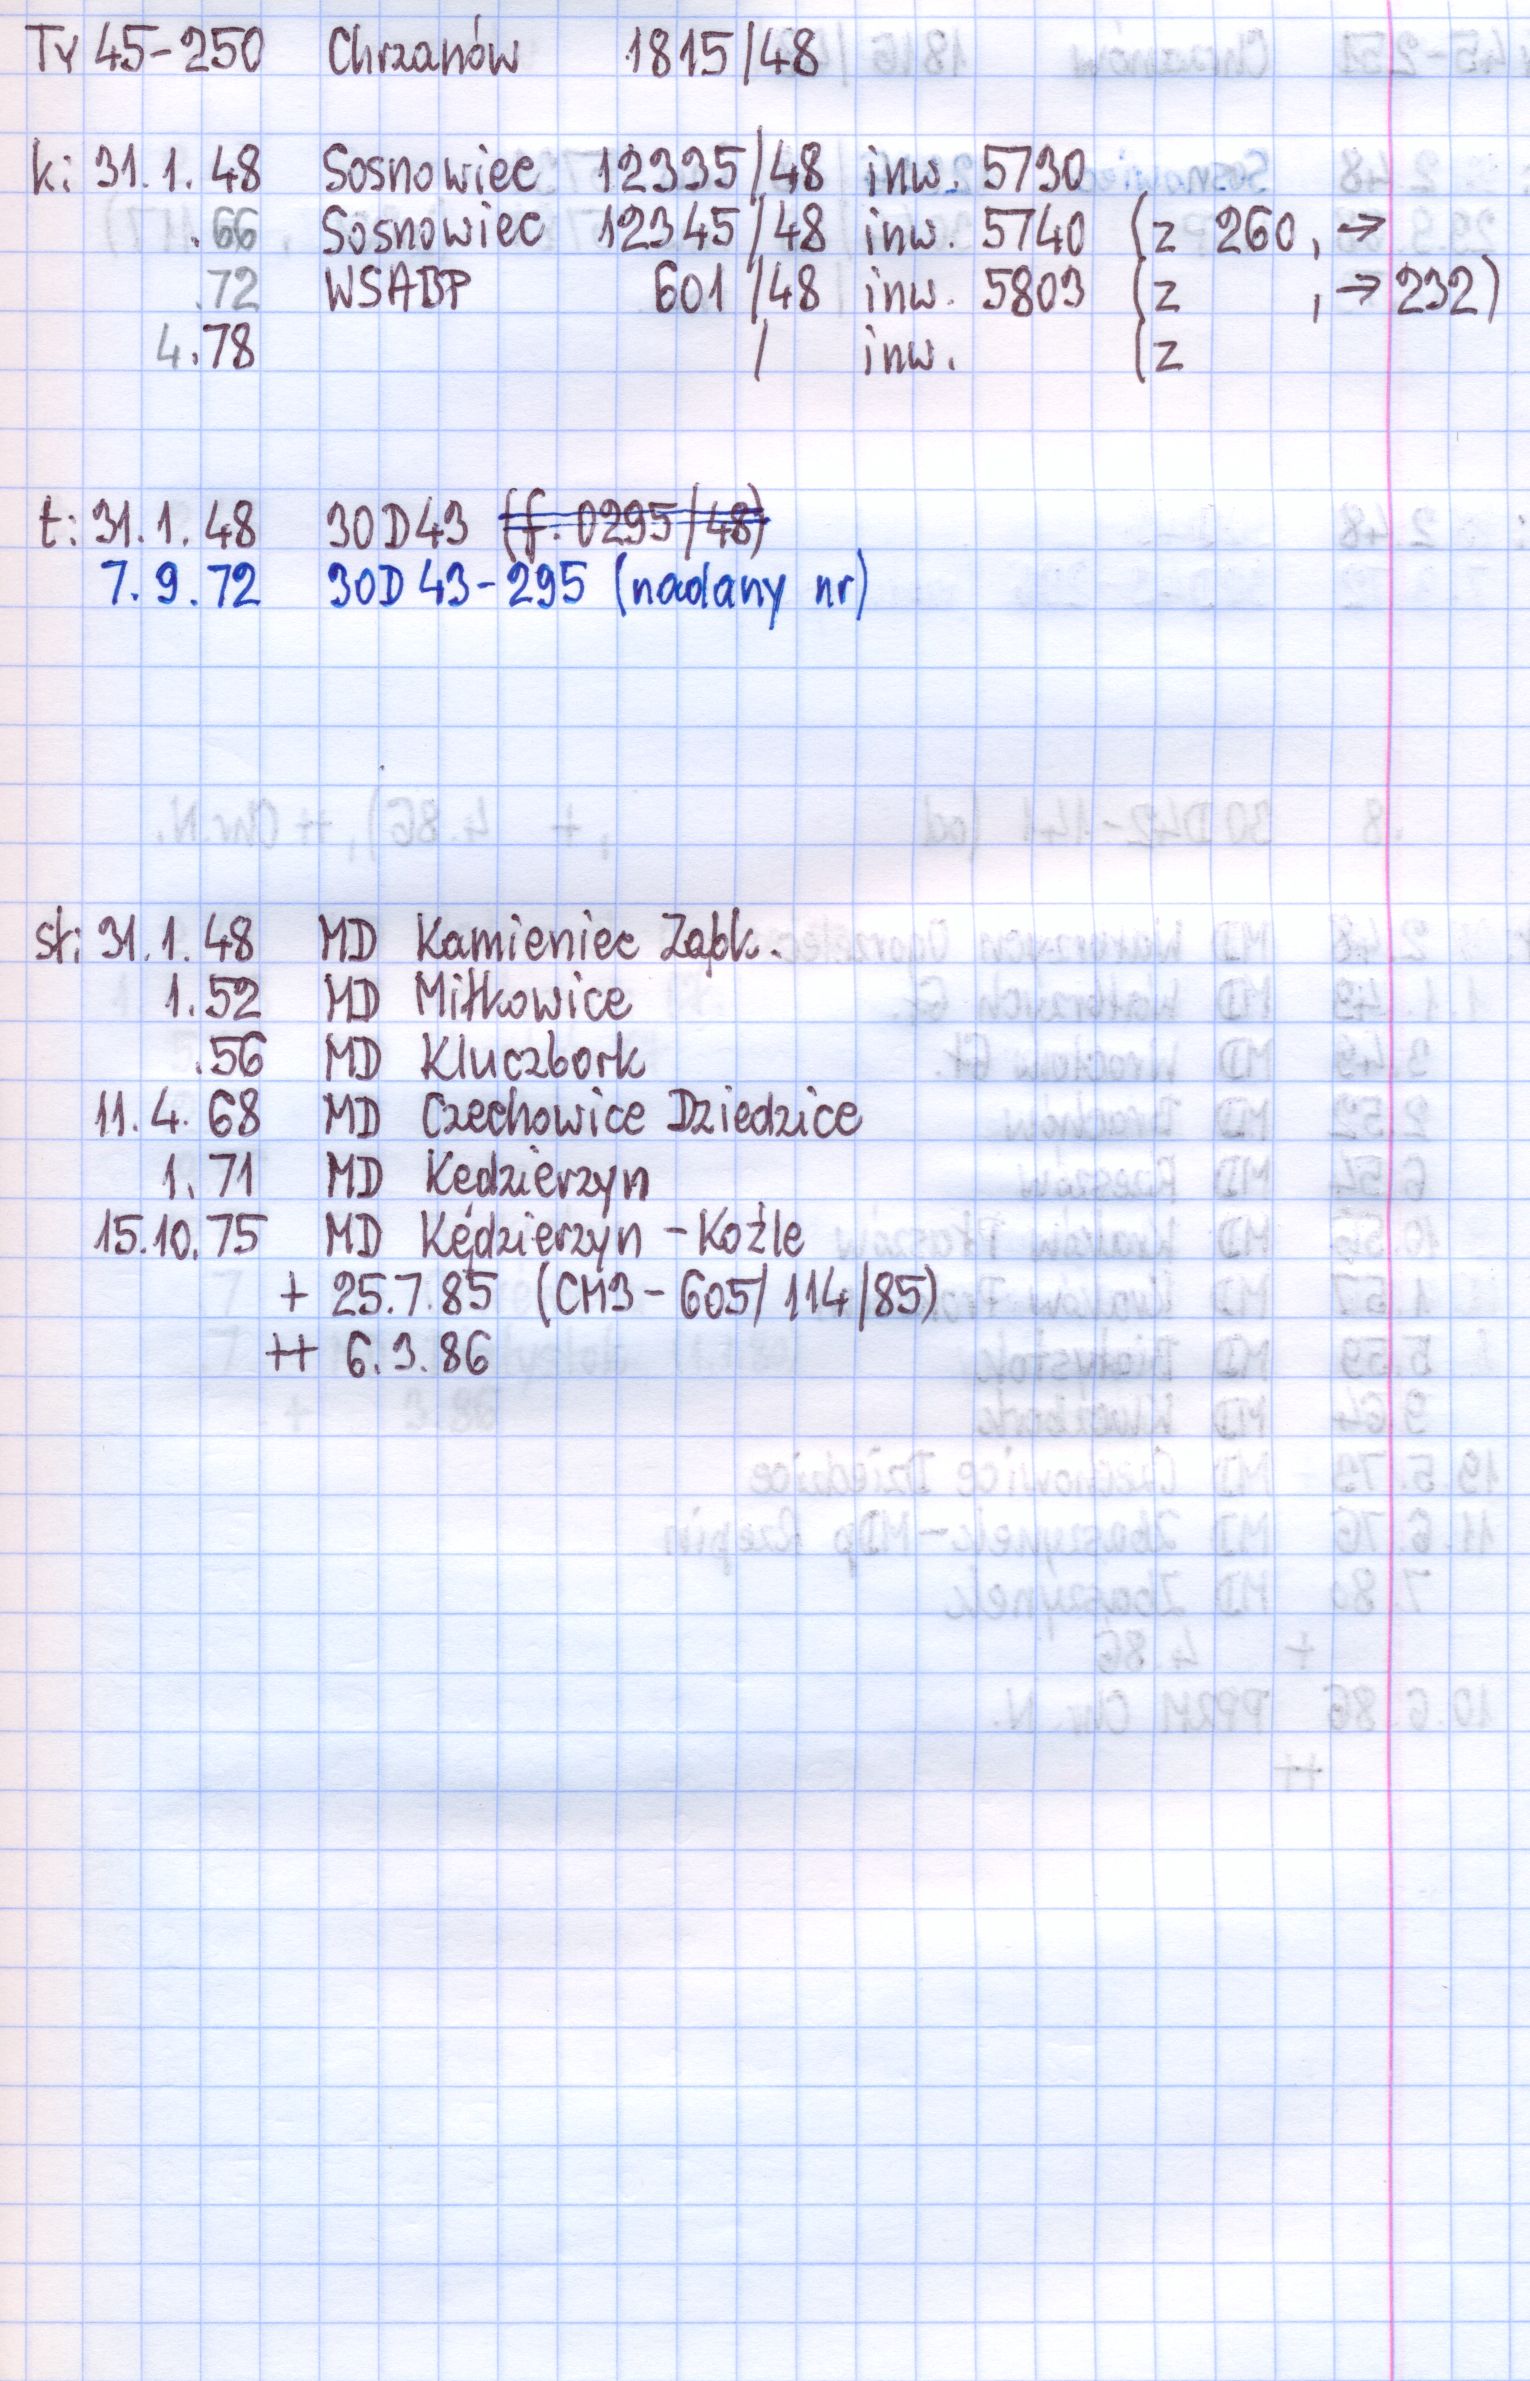 Ty 45-250 Chrzanów 1815/48
k: 31.1.48 Sosnowiec 12335/48 inw. 5730
.66 Sosnowiec 12345/48 inw. 5740 (z 260, →
.72 WSABP 601/48 inw. 5803 (z , → 232)
4.78 / inw. (z
t: 31.1.48 30D43 (f. 0295/48)
7.9.72 30D43-295 (nadany nr)
st: 31.1.48 MD Kamieniec Ząbk.
1.52 MD Miłkowice
.56 MD Kluczbork
11.4.68 MD Czechowice Dziedzice
1.71 MD Kędzierzyn
15.10.75 MD Kędzierzyn-Koźle
+ 25.7.85 (CM3-605/114/85)
++ 6.3.86